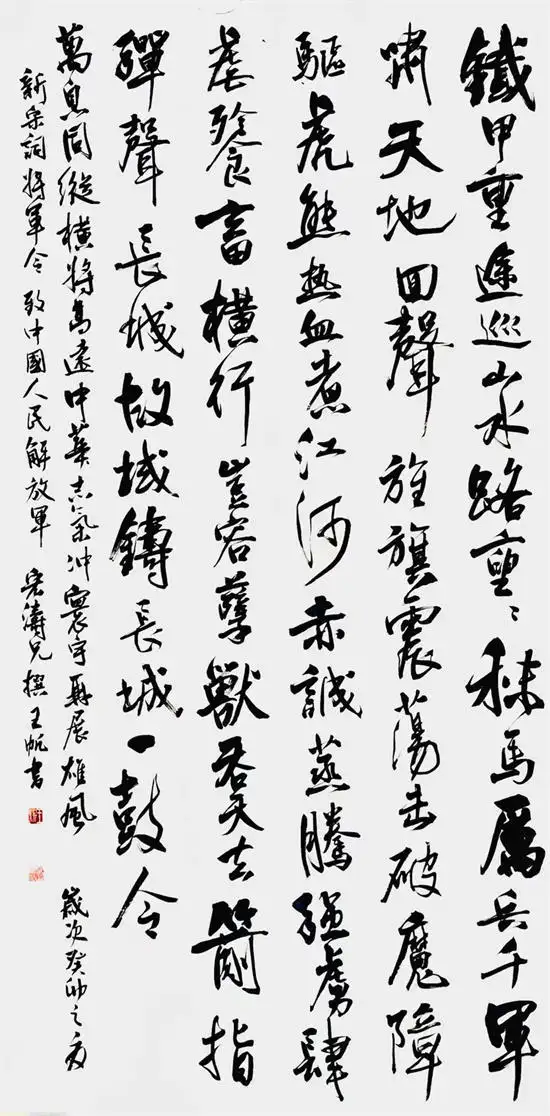 鐵甲重途巡山水路重〻秣馬厲兵千軍
嘯天地回聲旌旗震蕩击破魔障
驅虎熊热血煮江河赤誠蒸騰强虜肆
虐飧畜橫行豈容孽獸吞天去箭指
彈聲長城故域鑄長城一鼓令
萬息同縱橫將高遠中華志氣冲寰宇再展雄風 歲次癸卯之夏
新宋詞將軍令 致中國人民解放軍 宏濤兄撰王帆書